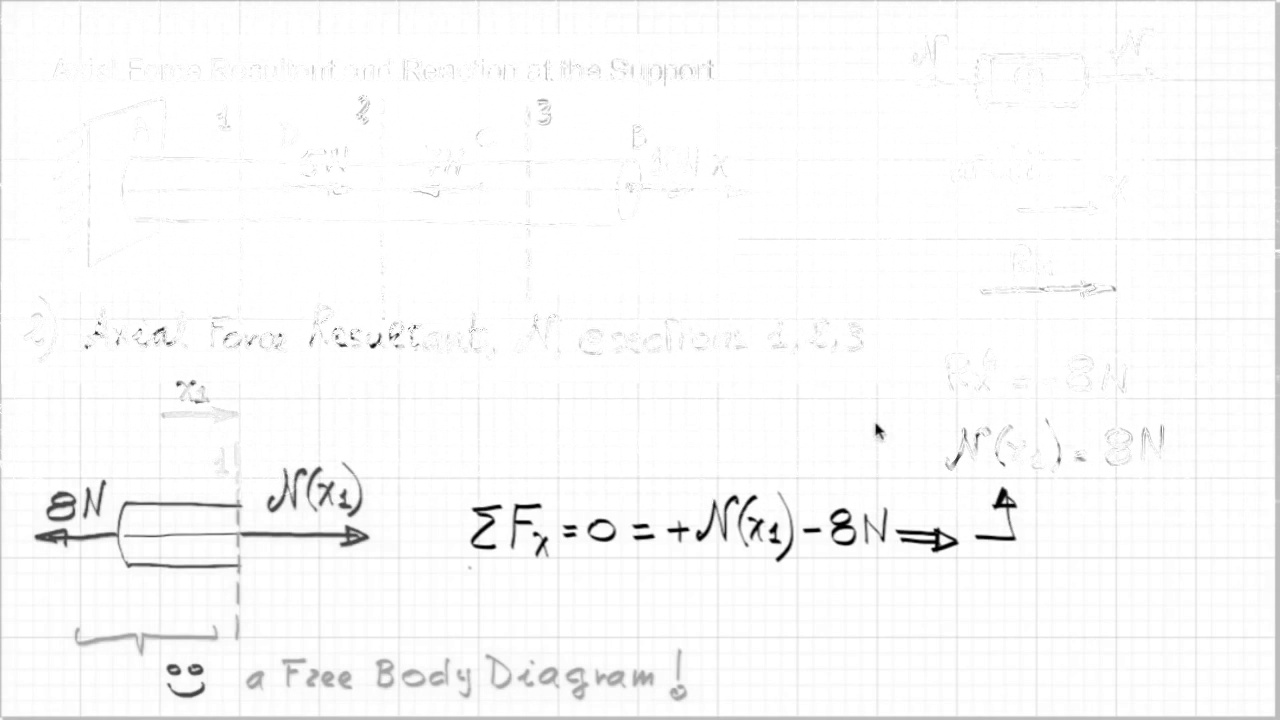 Axial Force Resultant and Reaction at the Support
N N
1 2 3
A D C B
5N 7N 10N x
x
Rx
2) Axial Force Resultant, N, @ sections 1, 2, 3
x1
RxA = -8N
N(x1) = 8N
1
8N N(x1)
ΣFx = 0 = +N(x1) - 8N ⇒
a Free Body Diagram!